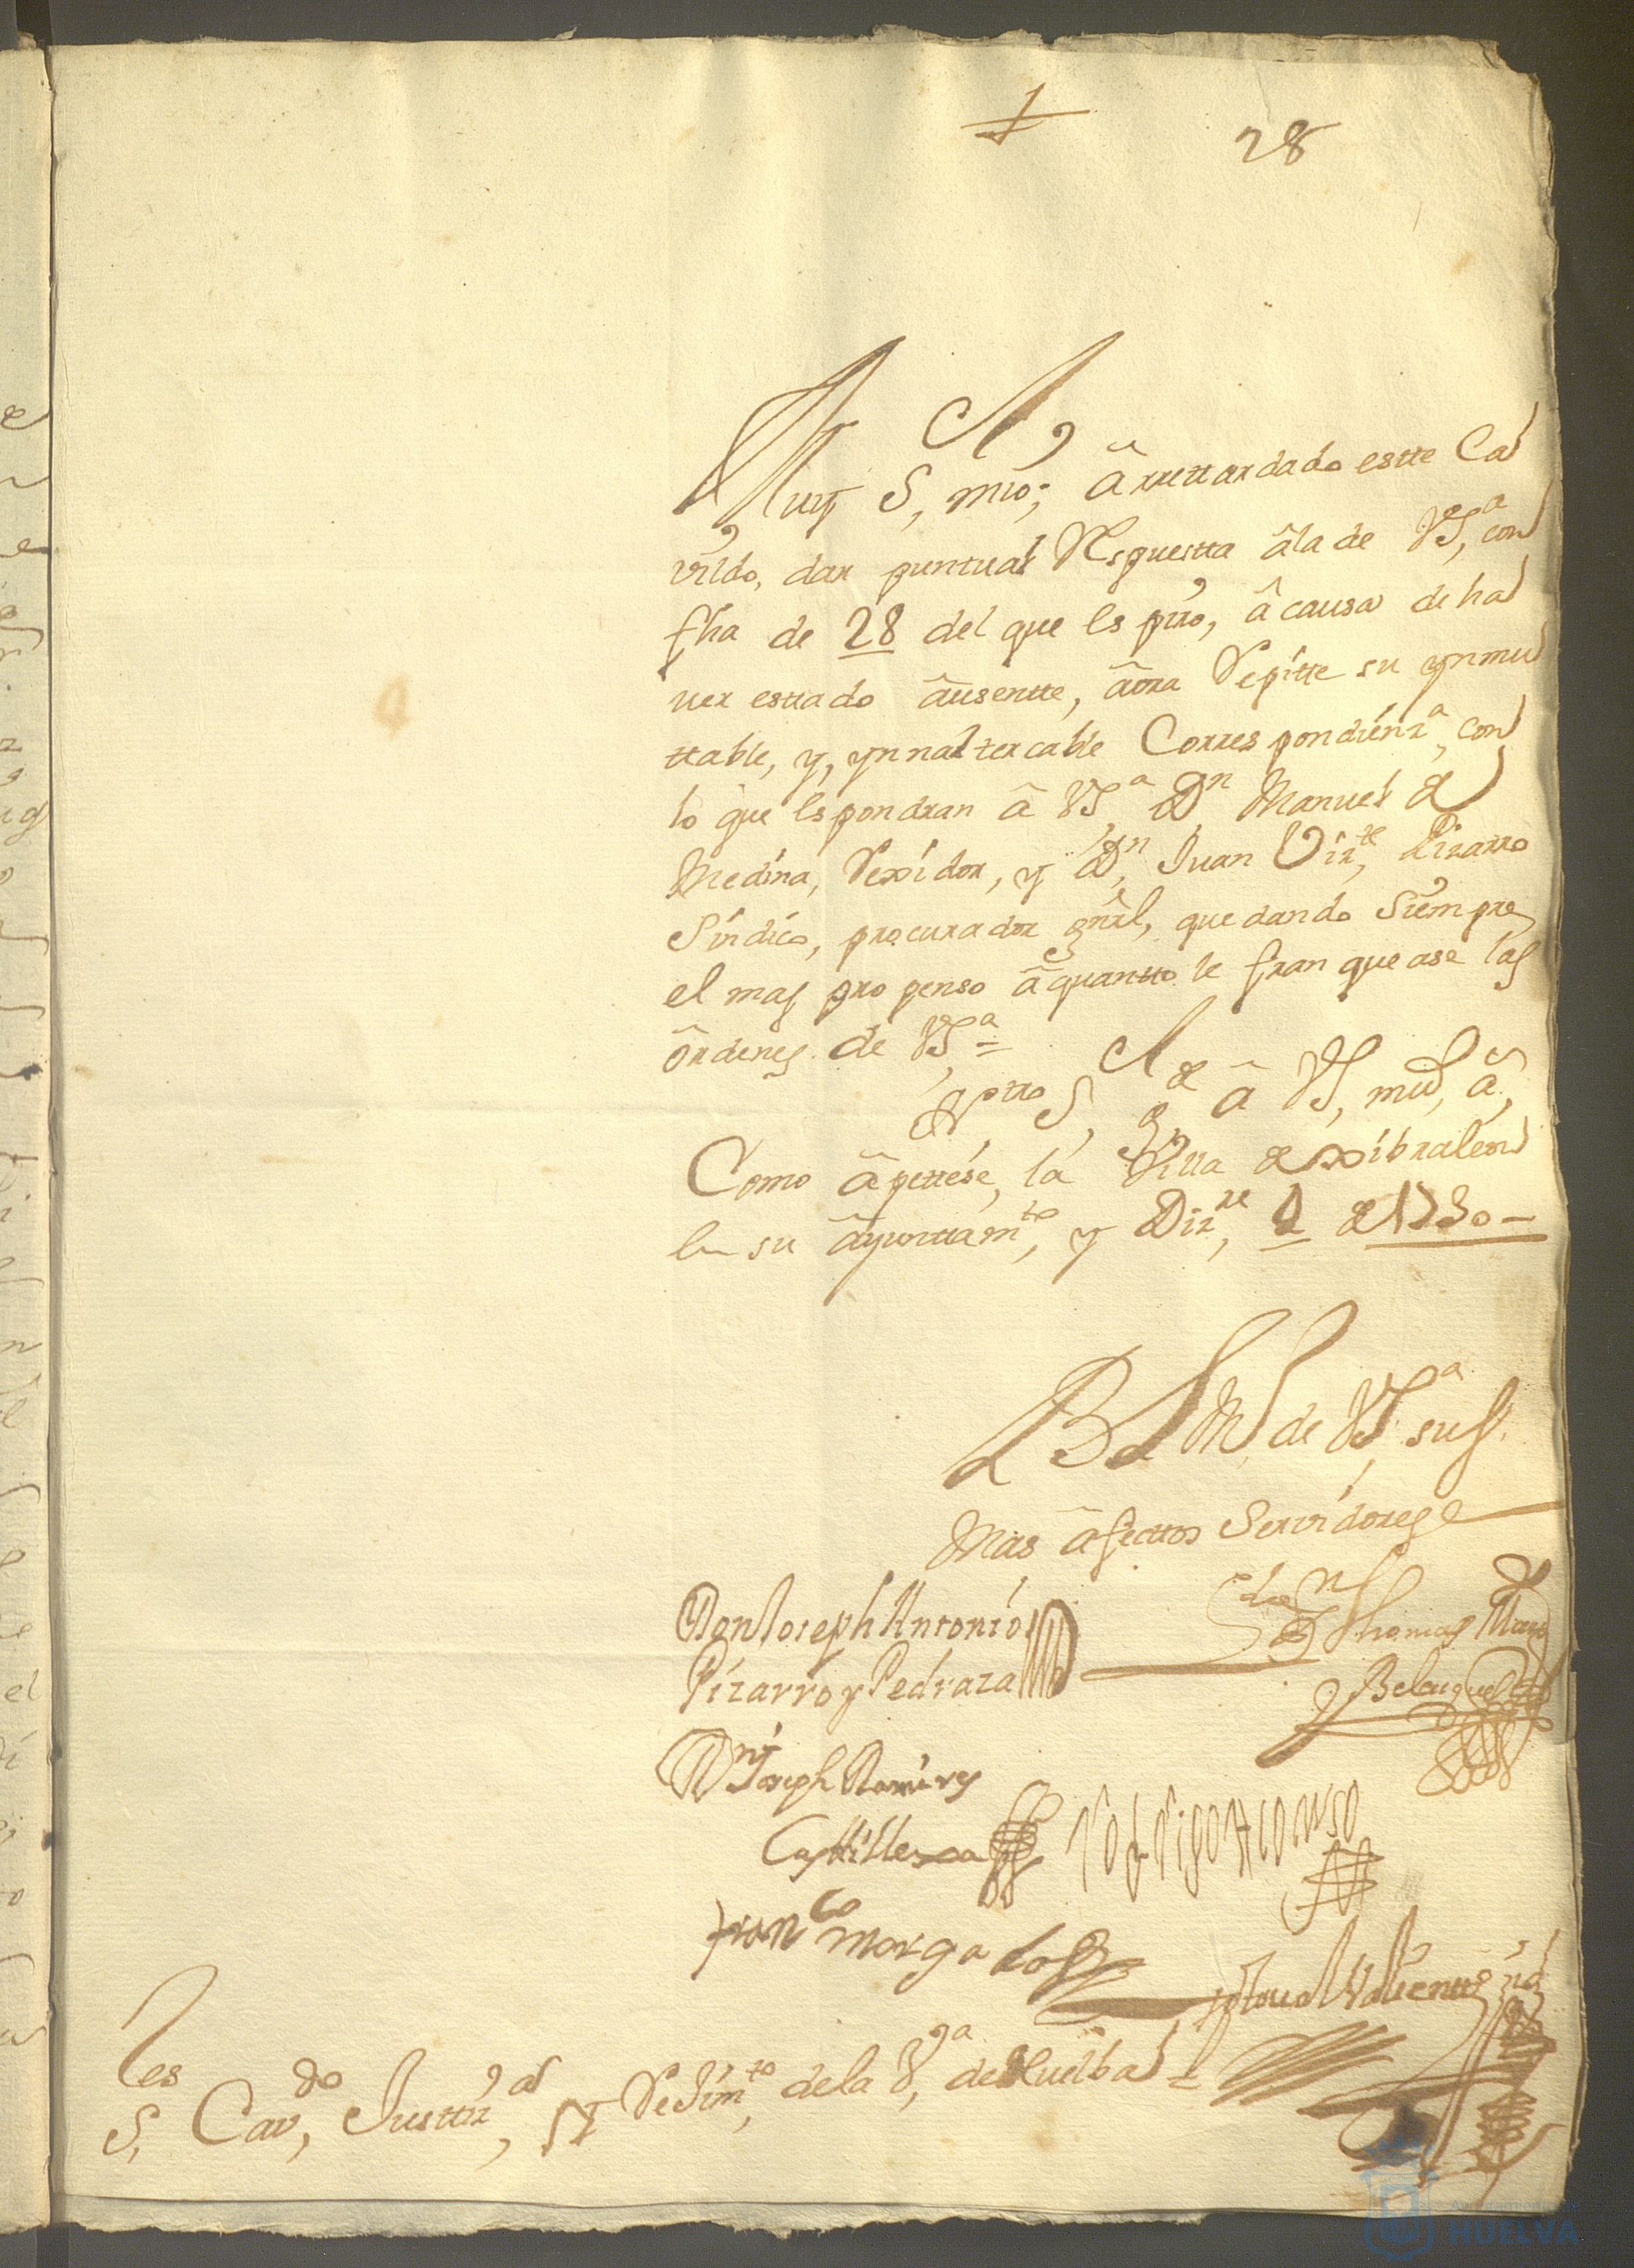 28
Muy S.r mío; â rrettardado estte Ca
vildo, dar puntual Respuestta âla de VS.a con
fha de 28 del que es ppro, â causa de ha
ver estado âusentte, âora Repitte su ynmu
ttable, y, ynnalttercable Correspondienz.a, con
lo que espondran â VS.a Dn Manuel de
Medina, Rexidor, y Dn Juan Viz.te Pizarro
Síndico, procurador gnrl, quedando Siempre
el mas propenso âquantto le franquease las
ôrdenes de VS.a =
Nttro S.r g.de â VS, mus. a.s
Como âpettése, la Villa de Xibraleon
en su âyunttam.to, y Diz.re 2 de 1730 =
BLM de VS.a sus
Mas âfecttos Servidores
Don Joseph Antonio
Pizarro y Pedraza
Thomas
y Belazquez
Dn Joseph Ramires
Casttillexa
Rodrigo Alonso
Fran.co morgado
Valientte
S.res Cav.do Justtiz.a, y Rejim.to de la V.a de Huelba =
Ayuntamiento de
HUELVA